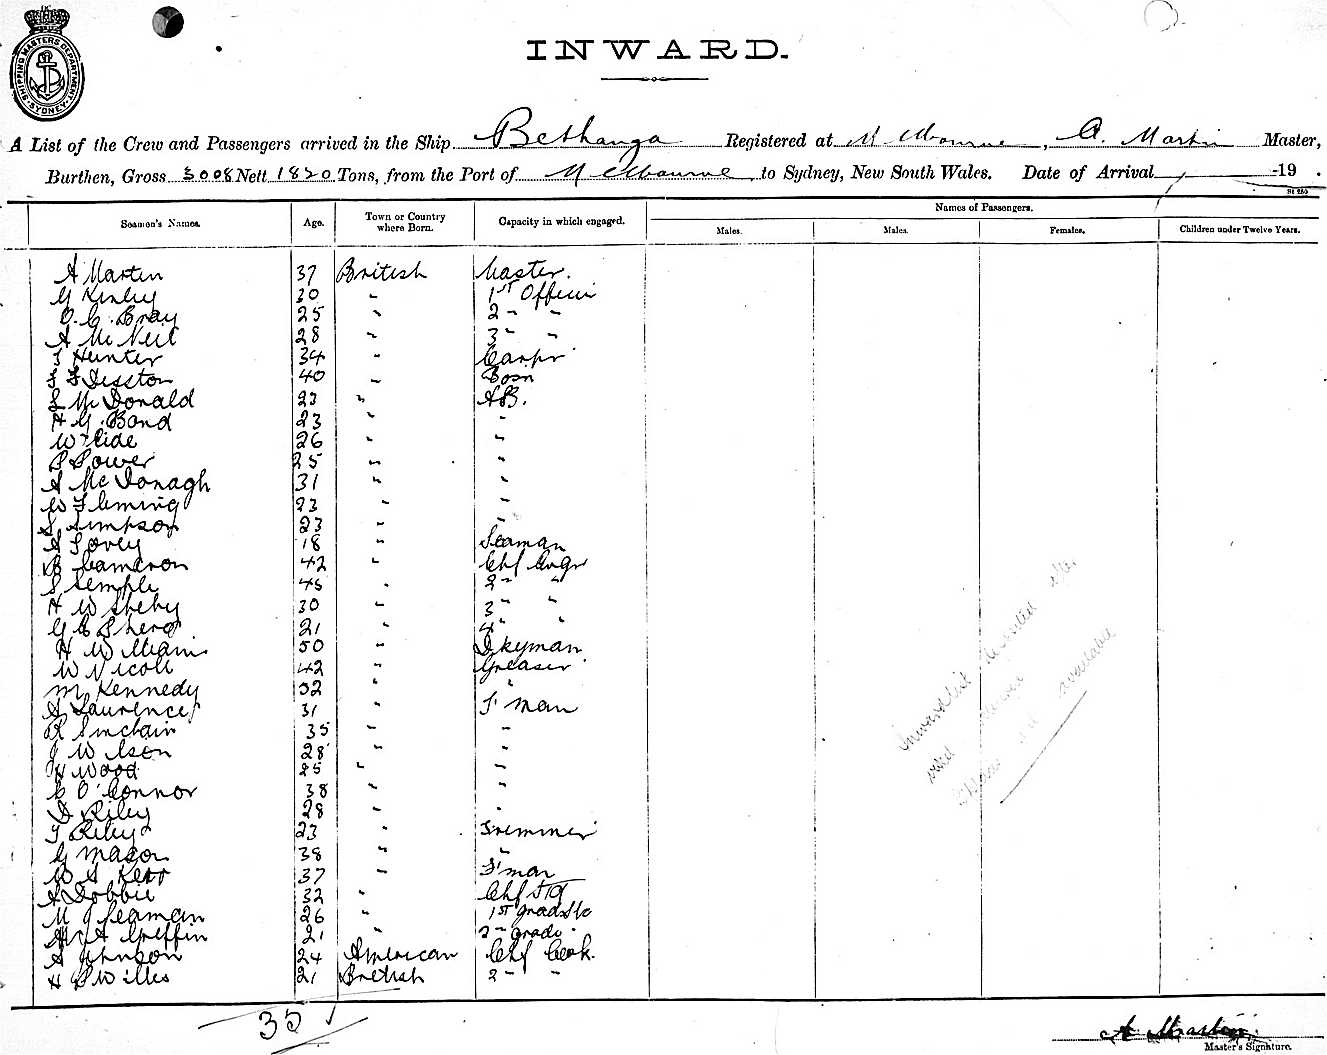 SHIPPING MASTERS DEPARTMENT · SYDNEY ·
INWARD.
A List of the Crew and Passengers arrived in the Ship Bethanga Registered at Melbourne, A. Martin Master,
Burthen, Gross 3008 Nett 1820 Tons, from the Port of Melbourne to Sydney, New South Wales. Date of Arrival -19 .
St 250
Seamen's Names. Age. Town or Country where Born. Capacity in which engaged. Names of Passengers.
Males. Males. Females. Children under Twelve Years.
A Martin 37 British Master.
G Kinley 30 " 1ST Officer
O. C. Bray 25 " 2 " "
A McNeil 28 " 3 " "
T Hunter 34 " Carpr
40 " Bosn
McDonald 23 " AB.
H G. Bond 23 " "
W 26 " "
P Power 25 " "
A McDonagh 31 " "
W Fleming 23 " "
S Simpson 23 " "
A 18 " Seaman
B Cameron 42 " Chf Engr
S Semple 45 " 2 " "
H W 30 " 3 " "
G C 21 " 4 " "
H William 50 " Dkyman
W Nicoll 42 " Greaser
M Kennedy 52 " "
A Laurence 31 " F'man
R Sinclair 35 " "
J Wilson 28 " "
H Wood 25 " "
C O'Connor 38 " "
D Riley 28 " "
T Riley 23 " Tremmer
G Mason 38 " "
W S Kerr 37 " F'man
A Dobbie 32 " Chf Std
M J Seaman 26 " 1ST grade Std
A Griffin 21 " 2" grade "
A Johnson 24 American Chf Cook.
H G Willis 21 British 2 " "
35
Inward list
not available
A Martin
Master's Signature.